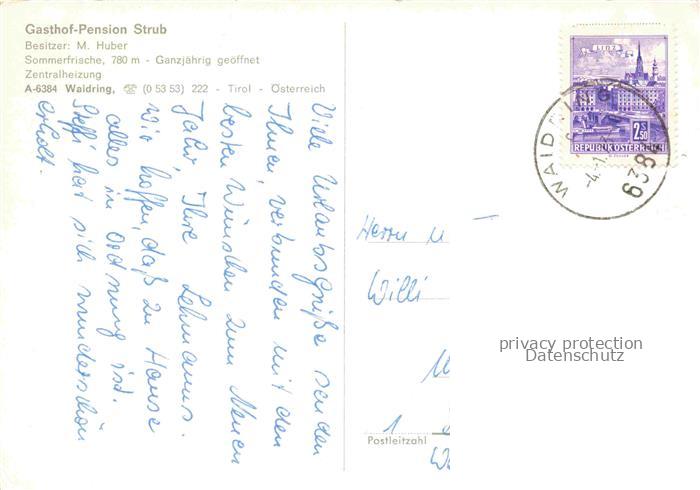 Gasthof-Pension Strub
Besitzer: M. Huber
Sommerfrische, 780 m - Ganzjährig geöffnet
Zentralheizung
A-6384 Waidring, ☎ (0 53 53) 222 - Tirol - Österreich
Viele Urlaubsgrüße senden
Ihnen, verbunden mit den
besten Wünschen zum Neuen
Jahr, Ihre Lehmanns.
Wir hoffen, daß zu Hause
alles in Ordnung ist.
Steffi hat sich wunderschön
erholt.
LINZ
2.50 S
REPUBLIK ÖSTERREICH
WAIDRING
6384
Herrn u
Willi
privacy protection
Datenschutz
1
Postleitzahl